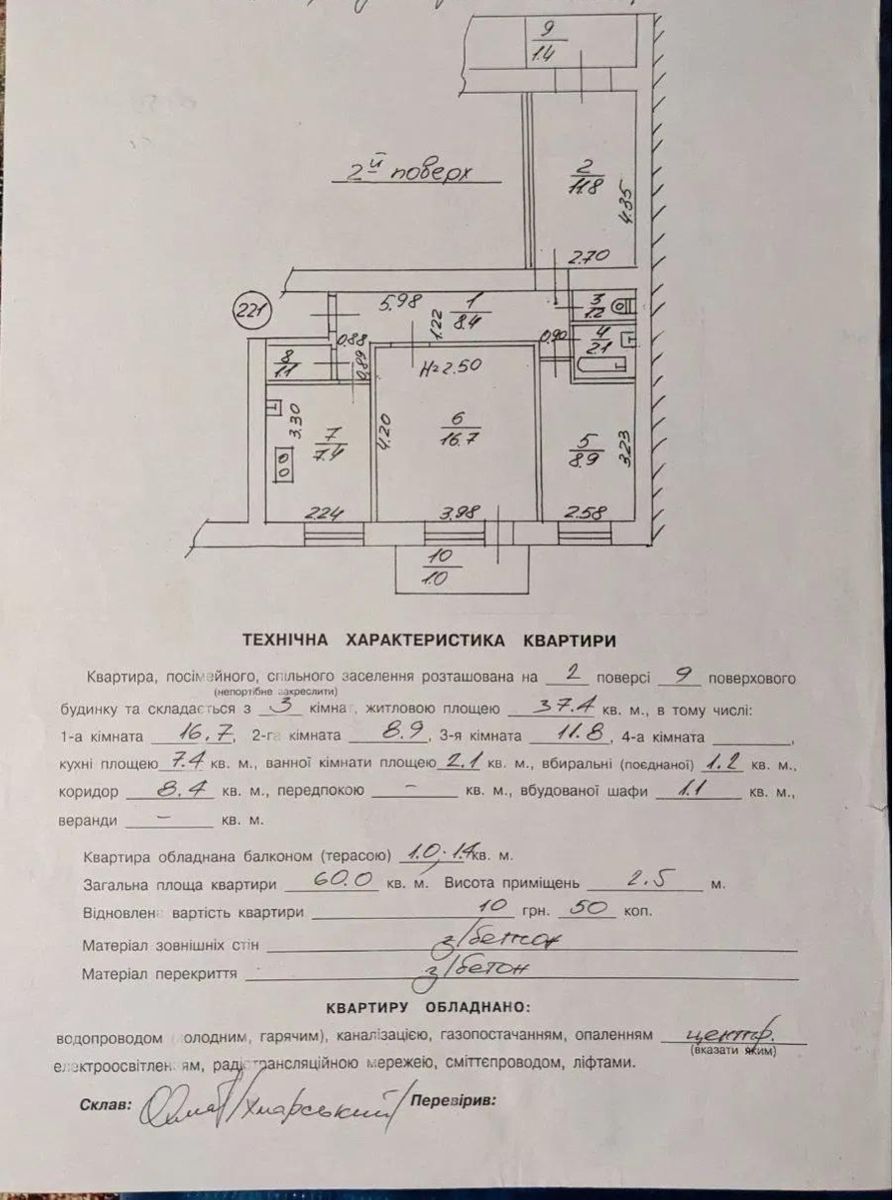 9
1.4
2й поверх
2
11.8
4.35
2.70
221
5.98
1
8.4
1.22
3
1.2
4
2.1
0.90
0.88
0.89
8
1.1
H=2.50
3.30
7
7.4
4.20
6
16.7
5
8.9
3.23
2.24
3.98
2.58
10
1.0
ТЕХНІЧНА ХАРАКТЕРИСТИКА КВАРТИРИ
Квартира, посімейного, спільного заселення розташована на 2 поверсі 9 поверхового
(непортібне закреслити)
будинку та складається з 3 кімнат, житловою площею 37.4 кв. м., в тому числі:
1-а кімната 16,7, 2-га кімната 8.9, 3-я кімната 11.8, 4-а кімната ,
кухні площею 7.4 кв. м., ванної кімнати площею 2.1 кв. м., вбиральні (поєднаної) 1.2 кв. м.,
коридор 8.4 кв. м., передпокою – кв. м., вбудованої шафи 1.1 кв. м.,
веранди – кв. м.
Квартира обладнана балконом (терасою) 1.0; 1.4 кв. м.
Загальна площа квартири 60.0 кв. м. Висота приміщень 2.5 м.
Відновлена вартість квартири 10 грн. 50 коп.
Матеріал зовнішніх стін з/бетон
Матеріал перекриття з/бетон
КВАРТИРУ ОБЛАДНАНО:
водопроводом (холодним, гарячим), каналізацією, газопостачанням, опаленням центр.
(вказати яким)
електроосвітленням, радіотрансляційною мережею, сміттєпроводом, ліфтами.
Склав: /Хмарський/ Перевірив: